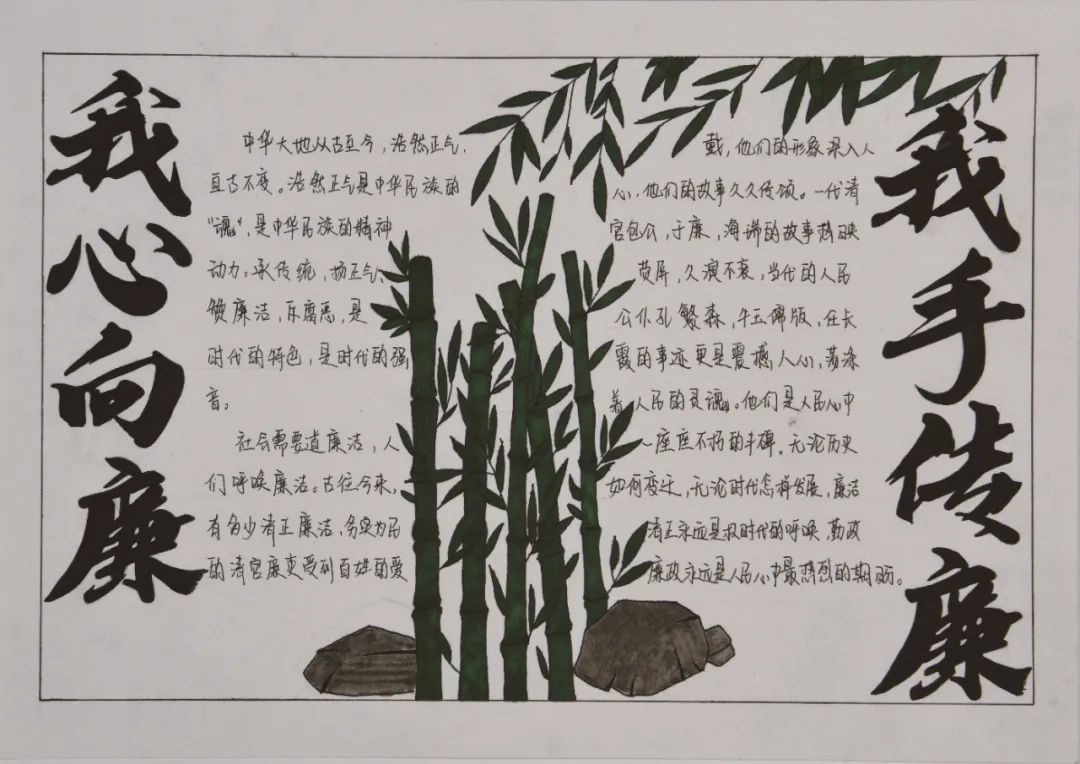 我心向廉
中华大地从古至今，浩然正气，
亘古不变。浩然正气是中华民族的
"魂"，是中华民族的精神
动力。承传统，扬正气、
赞廉洁，斥腐恶，是
时代的特色，是时代的强
音。
社会需要道廉洁，人
们呼唤廉洁。古往今来，
有多少清正廉洁、务实为民
的清官廉吏受到百姓的爱
戴，他们的形象录入人
心，他们的故事久久传颂。一代清
官包公，于廉，海瑞的故事
荧屏，久演不衰，当代的人民
公仆孔繁森，牛玉儒版，任长
霞的事迹更是震撼人心，荡涤
着人民的灵魂。他们是人民心中
一座座不朽的丰碑。无论历史
如何变迁，无论时代怎样发展，廉洁
清正永远是时代的呼唤，勤政
廉政永远是人民心中最热烈的期盼。
我手传廉